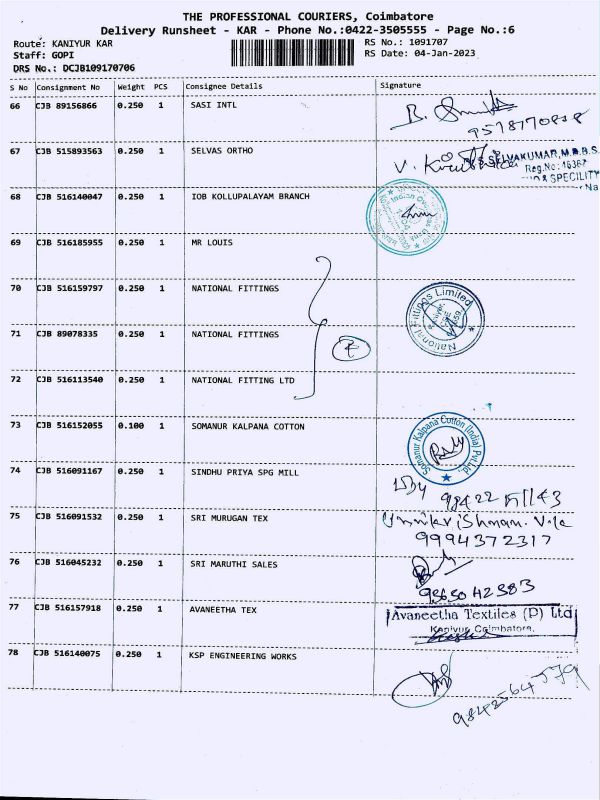 THE PROFESSIONAL COURIERS, Coimbatore
Delivery Runsheet - KAR - Phone No.:0422-3505555 - Page No.:6
Route: KANIYUR KAR
RS No.: 1091707
Staff: GOPI
RS Date: 04-Jan-2023
DRS No.: DCJB109170706
S No Consignment No Weight PCS Consignee Details Signature
66 CJB 89156866 0.250 1 SASI INTL
9578770838
67 CJB 515893563 0.250 1 SELVAS ORTHO
SELVAKUMAR, M.B.B.S.
Reg.No: 16367
& SPECILITY
68 CJB 516140047 0.250 1 IOB KOLLUPALAYAM BRANCH
69 CJB 516185955 0.250 1 MR LOUIS
70 CJB 516159797 0.250 1 NATIONAL FITTINGS
National Fittings Limited
71 CJB 89078335 0.250 1 NATIONAL FITTINGS
72 CJB 516113540 0.250 1 NATIONAL FITTING LTD
73 CJB 516152055 0.100 1 SOMANUR KALPANA COTTON
Somanur Kalpana Cotton (India) Pvt Ltd.
74 CJB 516091167 0.250 1 SINDHU PRIYA SPG MILL
75 CJB 516091532 0.250 1 SRI MURUGAN TEX
9994372317
76 CJB 516045232 0.250 1 SRI MARUTHI SALES
9363042383
77 CJB 516157918 0.250 1 AVANEETHA TEX
Avaneetha Textiles (P) Ltd
Kaniyur, Coimbatore.
78 CJB 516140075 0.250 1 KSP ENGINEERING WORKS
9842564579